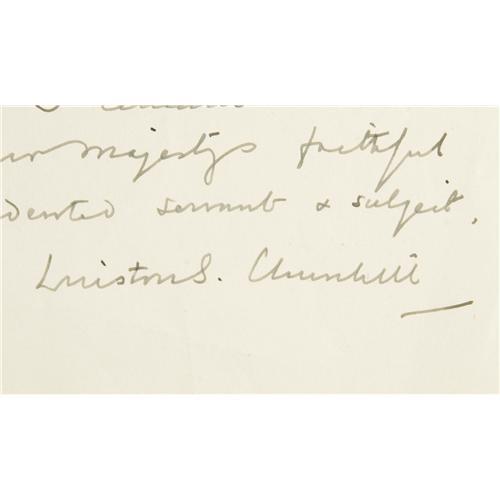 Majesty's faithful
devoted servant & subject,
Winston S. Churchill